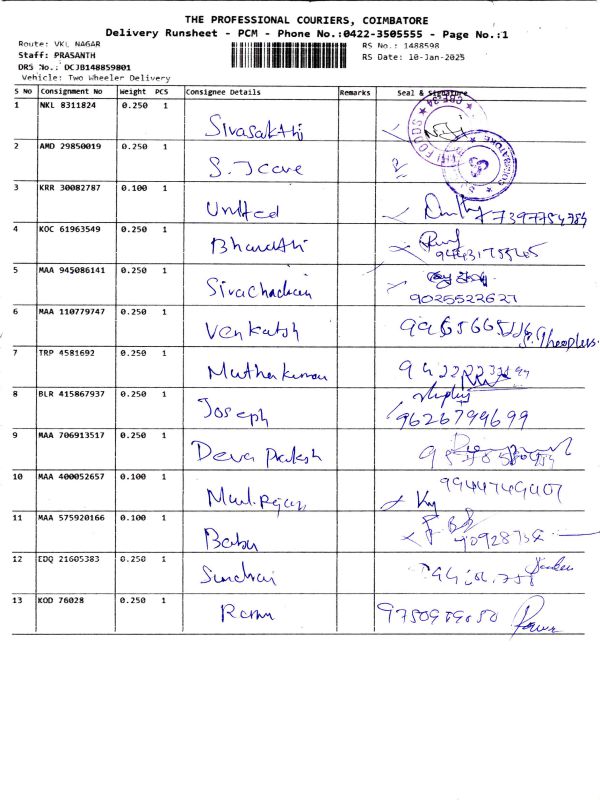 THE PROFESSIONAL COURIERS, COIMBATORE
Delivery Runsheet - PCM - Phone No.:0422-3505555 - Page No.:1
Route: VKL NAGAR
Staff: PRASANTH
DRS No.: DCJB148859801
Vehicle: Two Wheeler Delivery
RS No.: 1488598
RS Date: 10-Jan-2025
S NO Consignment No Weight PCS Consignee Details Remarks Seal & Signature
1 NKL 8311824 0.250 1 Sivasakthi
2 AMD 29850019 0.250 1 S.
3 KRR 30082787 0.100 1 United 7397754784
4 KOC 61963549 0.250 1 Bharathi
5 MAA 945086141 0.250 1 9025522627
6 MAA 110779747 0.250 1 Venkatsh
7 TRP 4581692 0.250 1 Muthukumar
8 BLR 415867937 0.250 1 Joseph 9626799699
9 MAA 706913517 0.250 1 Deva Prakash
10 MAA 400052657 0.100 1 9944749407
11 MAA 575920166 0.100 1 Babu
12 EDQ 21605383 0.250 1
13 KOD 76028 0.250 1 Ramu